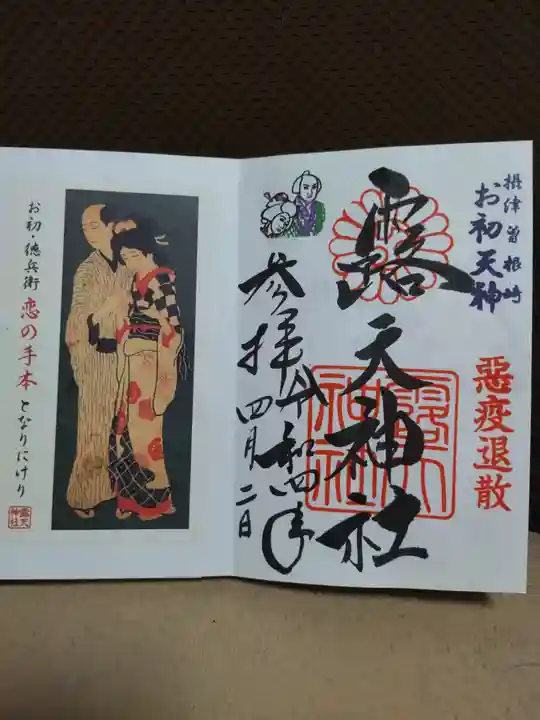 摂津曽根崎
お初天神
惡疫退散
露天神社
参拝 令和四年
四月二日
お初・徳兵衛 恋の手本 となりにけり
露天
神社